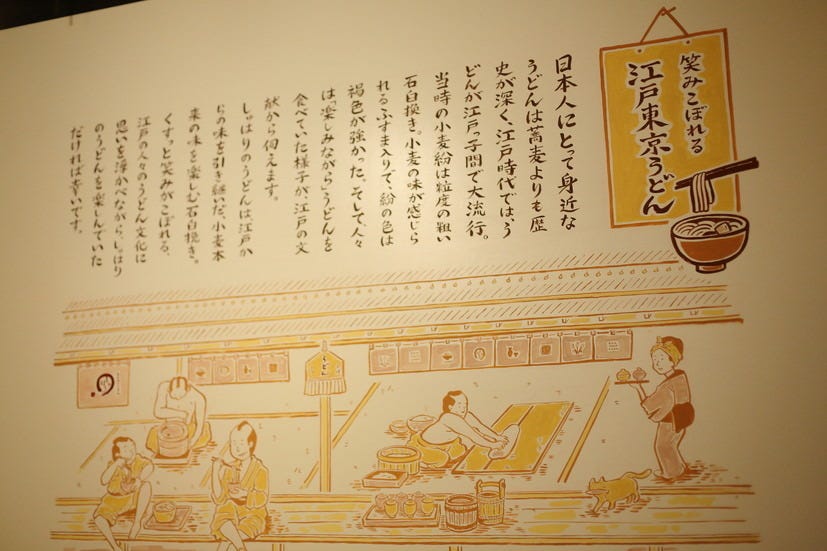 笑みこぼれる
江戸東京うどん
日本人にとって身近な
うどんは蕎麦よりも歴
史が深く、江戸時代では、う
どんが江戸っ子間で大流行。
当時の小麦粉は粒度の粗い
石臼挽き。小麦の味が感じら
れるふすま入りで、粉の色は
褐色が強かった。そして、人々
は「楽しみながら」うどんを
食べていた様子が、江戸の文
献から伺えます。
しゃはりのうどんは、江戸か
らの味を引き継いだ、小麦本
来の味を楽しむ石臼挽き。
くすっと笑みがこぼれる、
江戸の人々のうどん文化に
思いを浮かべながら、しゃはり
のうどんを楽しんでいた
だければ幸いです。
うどん